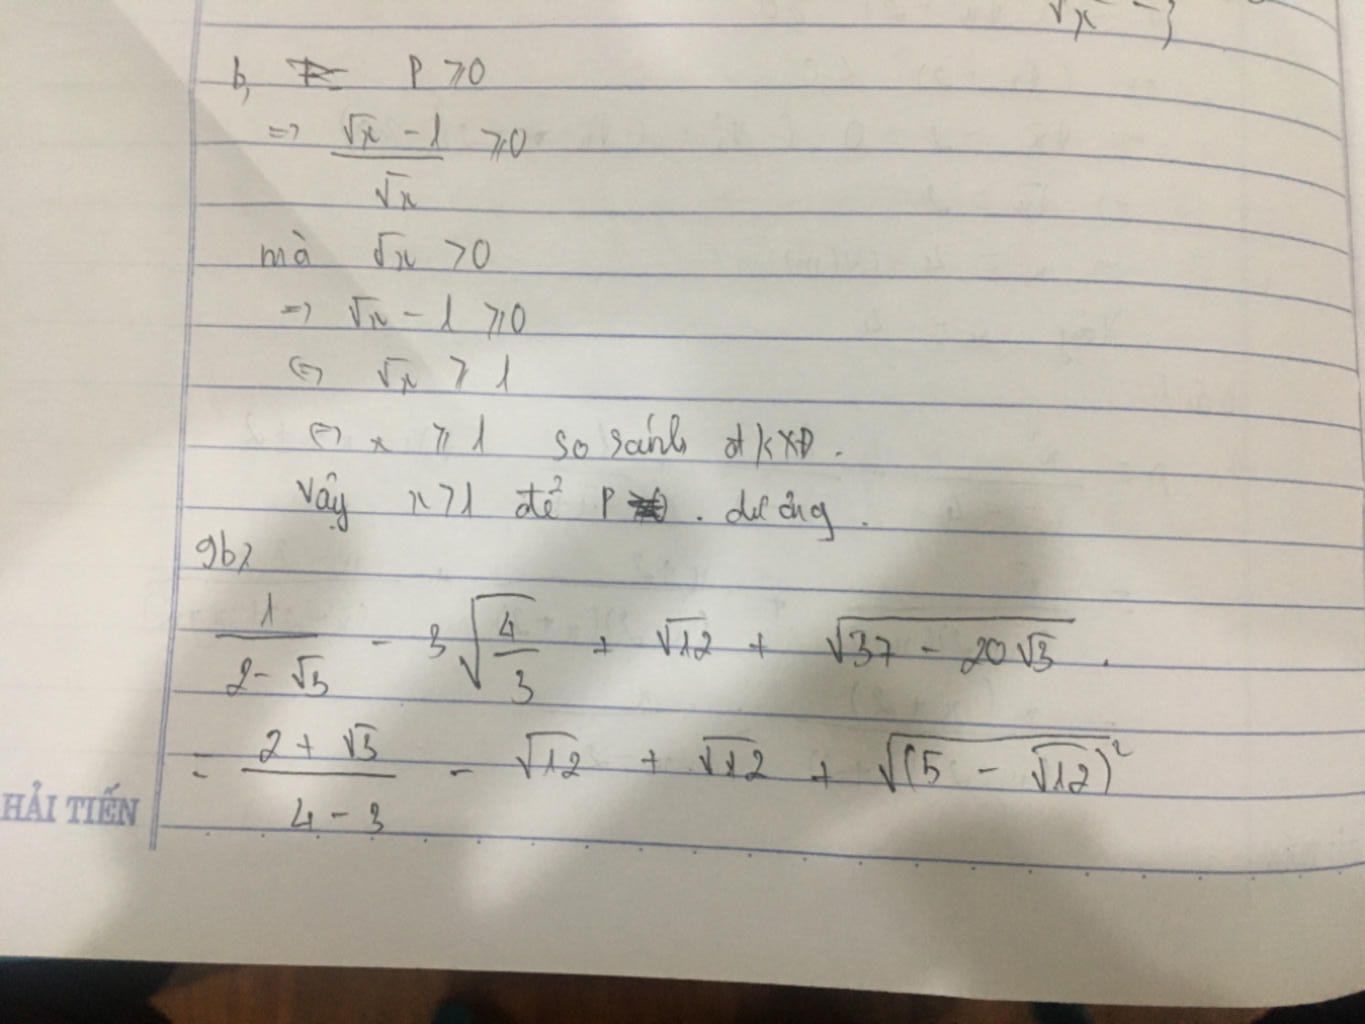 √x - 3
b, P ⩾0
=> (√x - 1)/√x ⩾0
mà √x >0
=> √x - 1 ⩾0
<=> √x ⩾ 1
<=> x ⩾ 1 so sánh đkXĐ.
Vậy x>1 để P . dương.
9b,
1/(2-√3) - 3√(4/3) + √12 + √(37 - 20√3) .
= (2+√3)/(4-3) - √12 + √12 + √(5 - √12)²
HẢI TIẾN